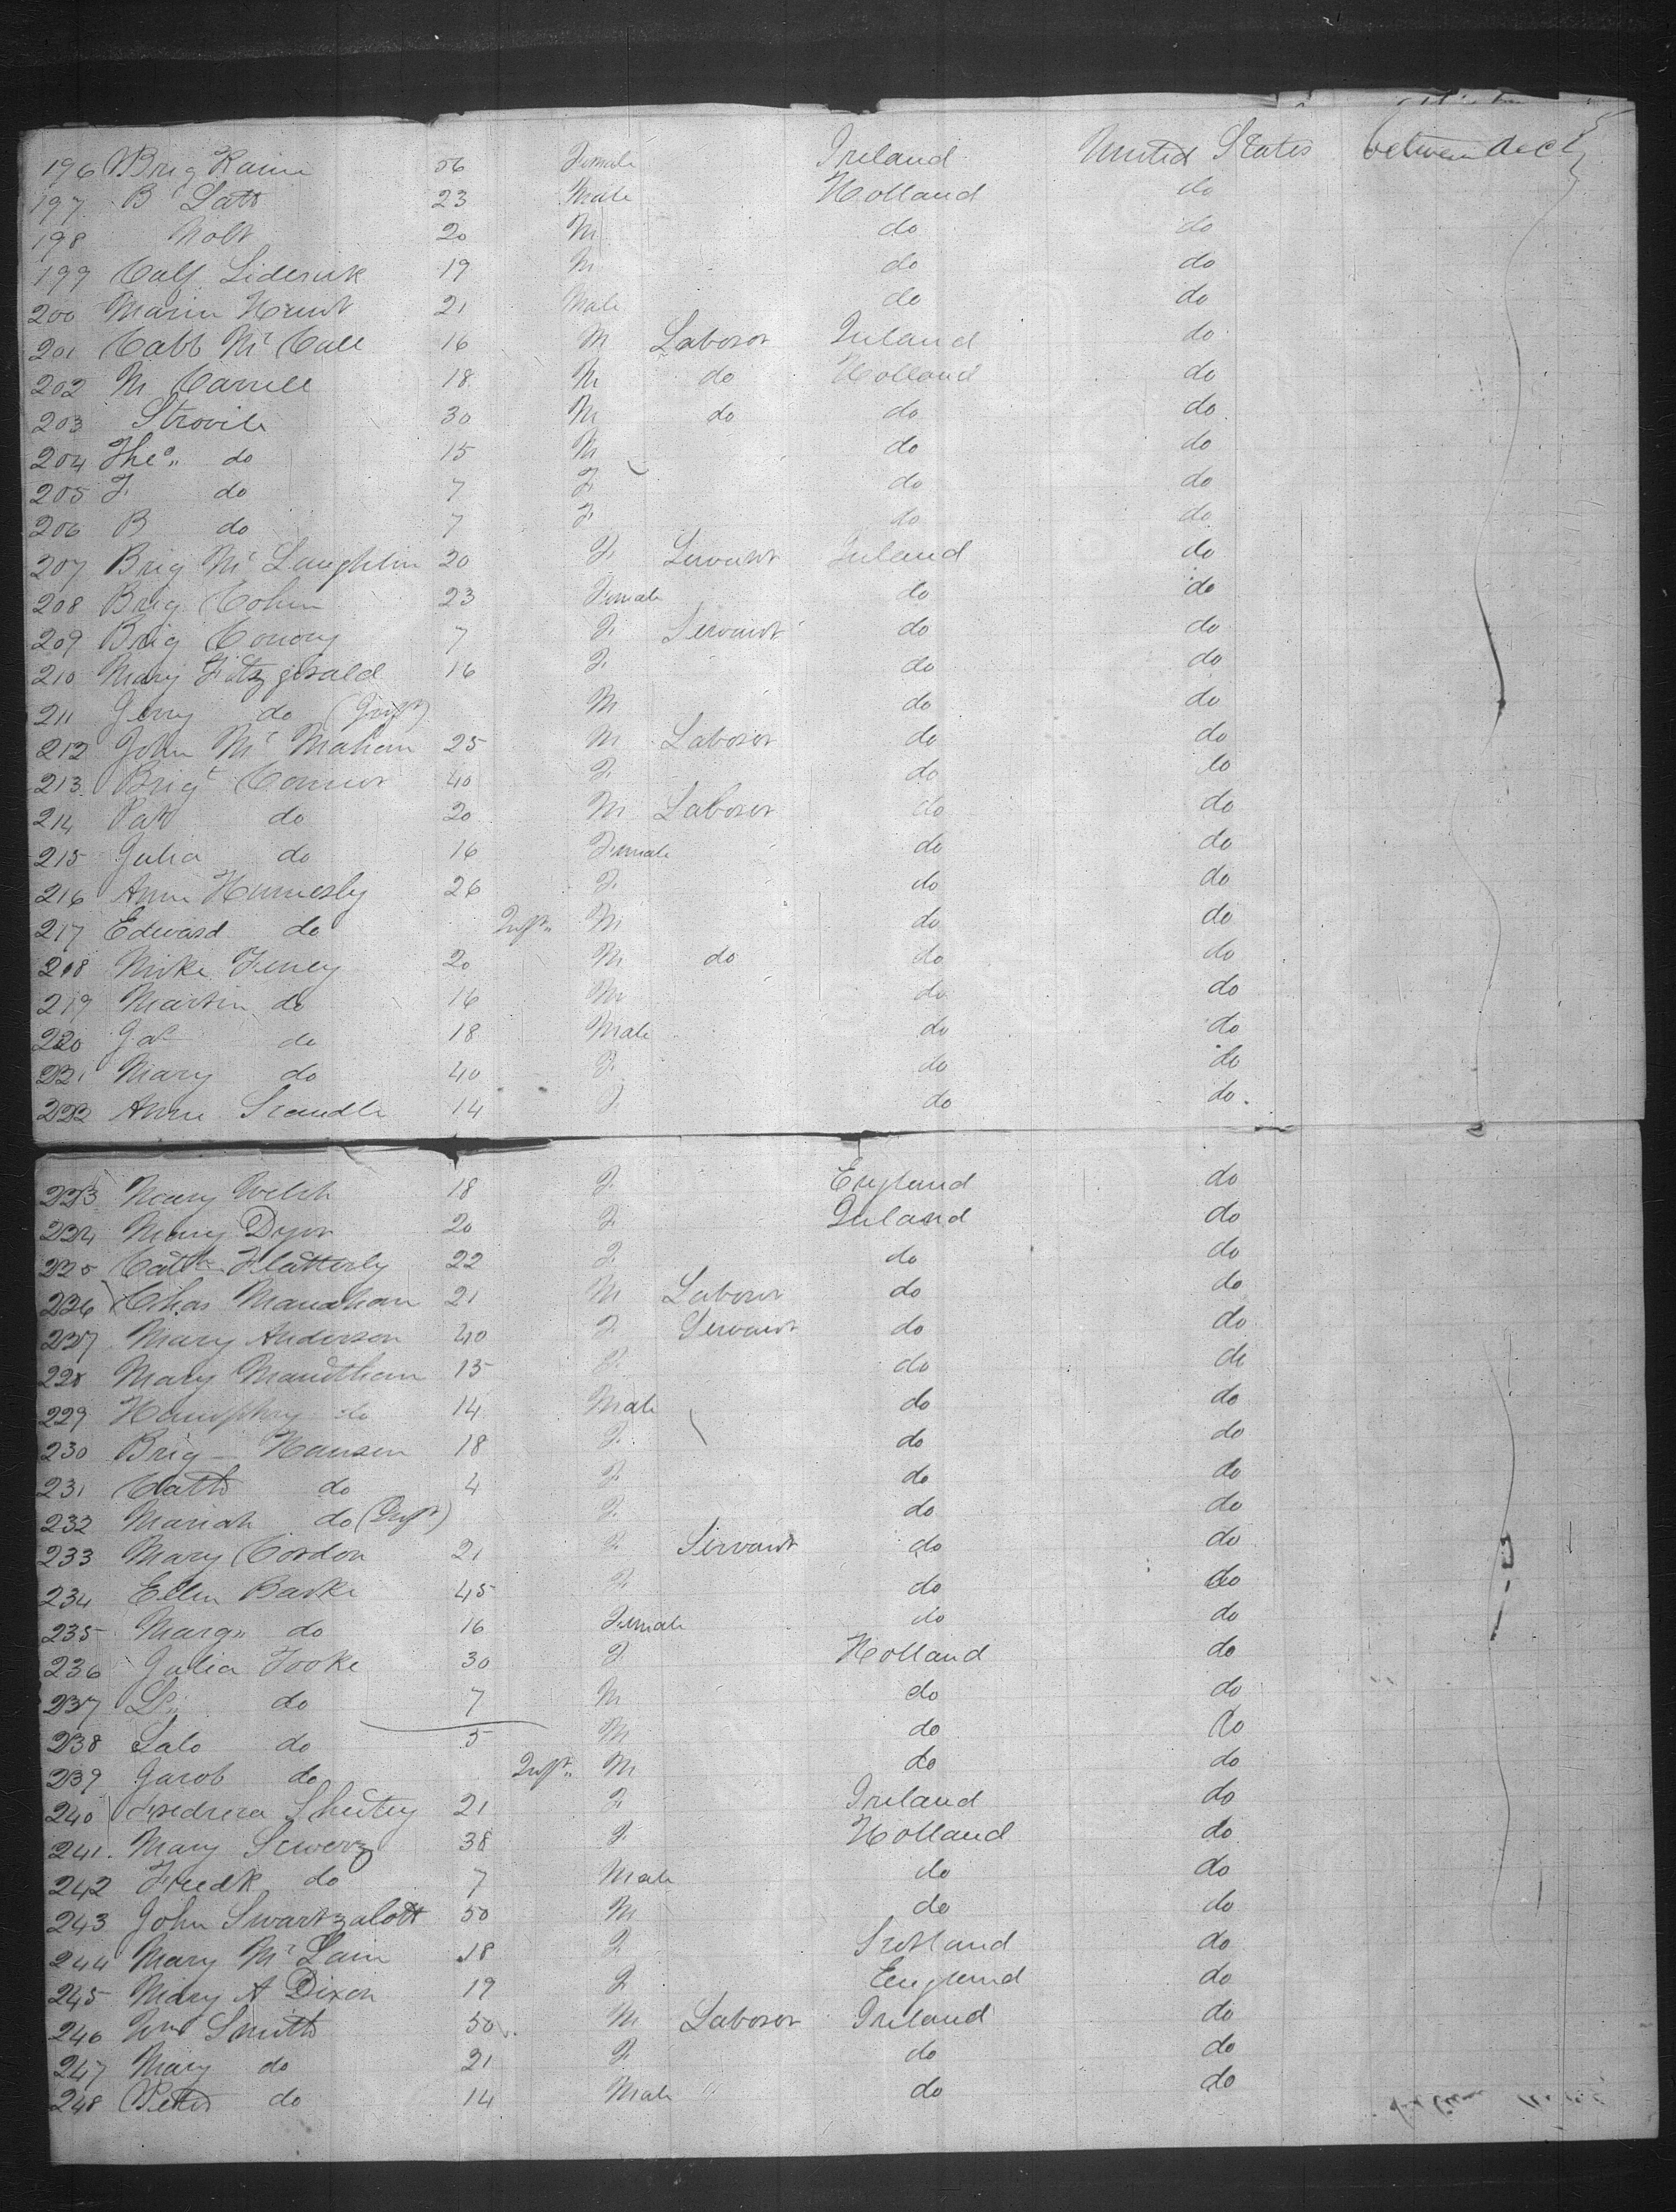 196 Brig Kaine 56 Female Ireland United States between deck
197 B Latt 23 Male Holland do
198 Nolt 20 M do do
199 Calf Liderick 19 M do do
200 21 Male do do
201 Cabb Mc Call 16 M Laboror Ireland do
202 M Carrell 18 M do Holland do
203 Strovile 30 M do do do
204 Theo do 15 M do do
205 F do 7 F do do
206 B do 7 F do do
207 Brig Mc Laughlin 20 F Servant Ireland do
208 Brig 23 Female do do
209 Brig Conory 7 F Servant do do
210 Mary Fitzgerald 16 F do do
211 Jerry do (Inft) M do do
212 John Mc Mahon 25 M Laboror do do
213 Brigt Connor 40 F do do
214 Pat do 20 M Laboror do do
215 Julia do 16 Female do do
216 Ann 26 F do do
217 Edward do Inft M do do
218 Mike Feney 20 M do do do
219 Martin do 16 M do do
220 Jas do 18 Male do do
221 Mary do 40 F do do
222 Anne Scandle 14 F do do.
223 Mary Welsh 18 F England do
224 Mary Dyor 20 F Ireland do
225 Cath Flatterly 22 F do do
226 Chas Manahan 21 M Laboror do do
227 Mary Anderson 40 F Servant do do
228 Mary 15 F do do
229 Humphry do 14 Male do do
230 Brig Hansen 18 F do do
231 Cath do 4 F do do
232 Mariah do (Inft) F do do
233 Mary Cordon 21 F Servant do do
234 Ellen Barke 45 F do do
235 Marg do 16 Female do do
236 Julia Fooke 30 F Holland do
237 do 7 M do do
238 Salo do 5 M do do
239 Jacob do Inft M do do
240 21 F Ireland do
241 Mary 38 F Holland do
242 Fredk do 7 Male do do
243 John Swartzalott 50 M do do
244 Mary Mc Lain 18 F Scotland do
245 Mary A Dixon 19 F England do
246 Wm Smith 50 M Laboror Ireland do
247 Mary do 21 F do do
248 Peter do 14 Male do do